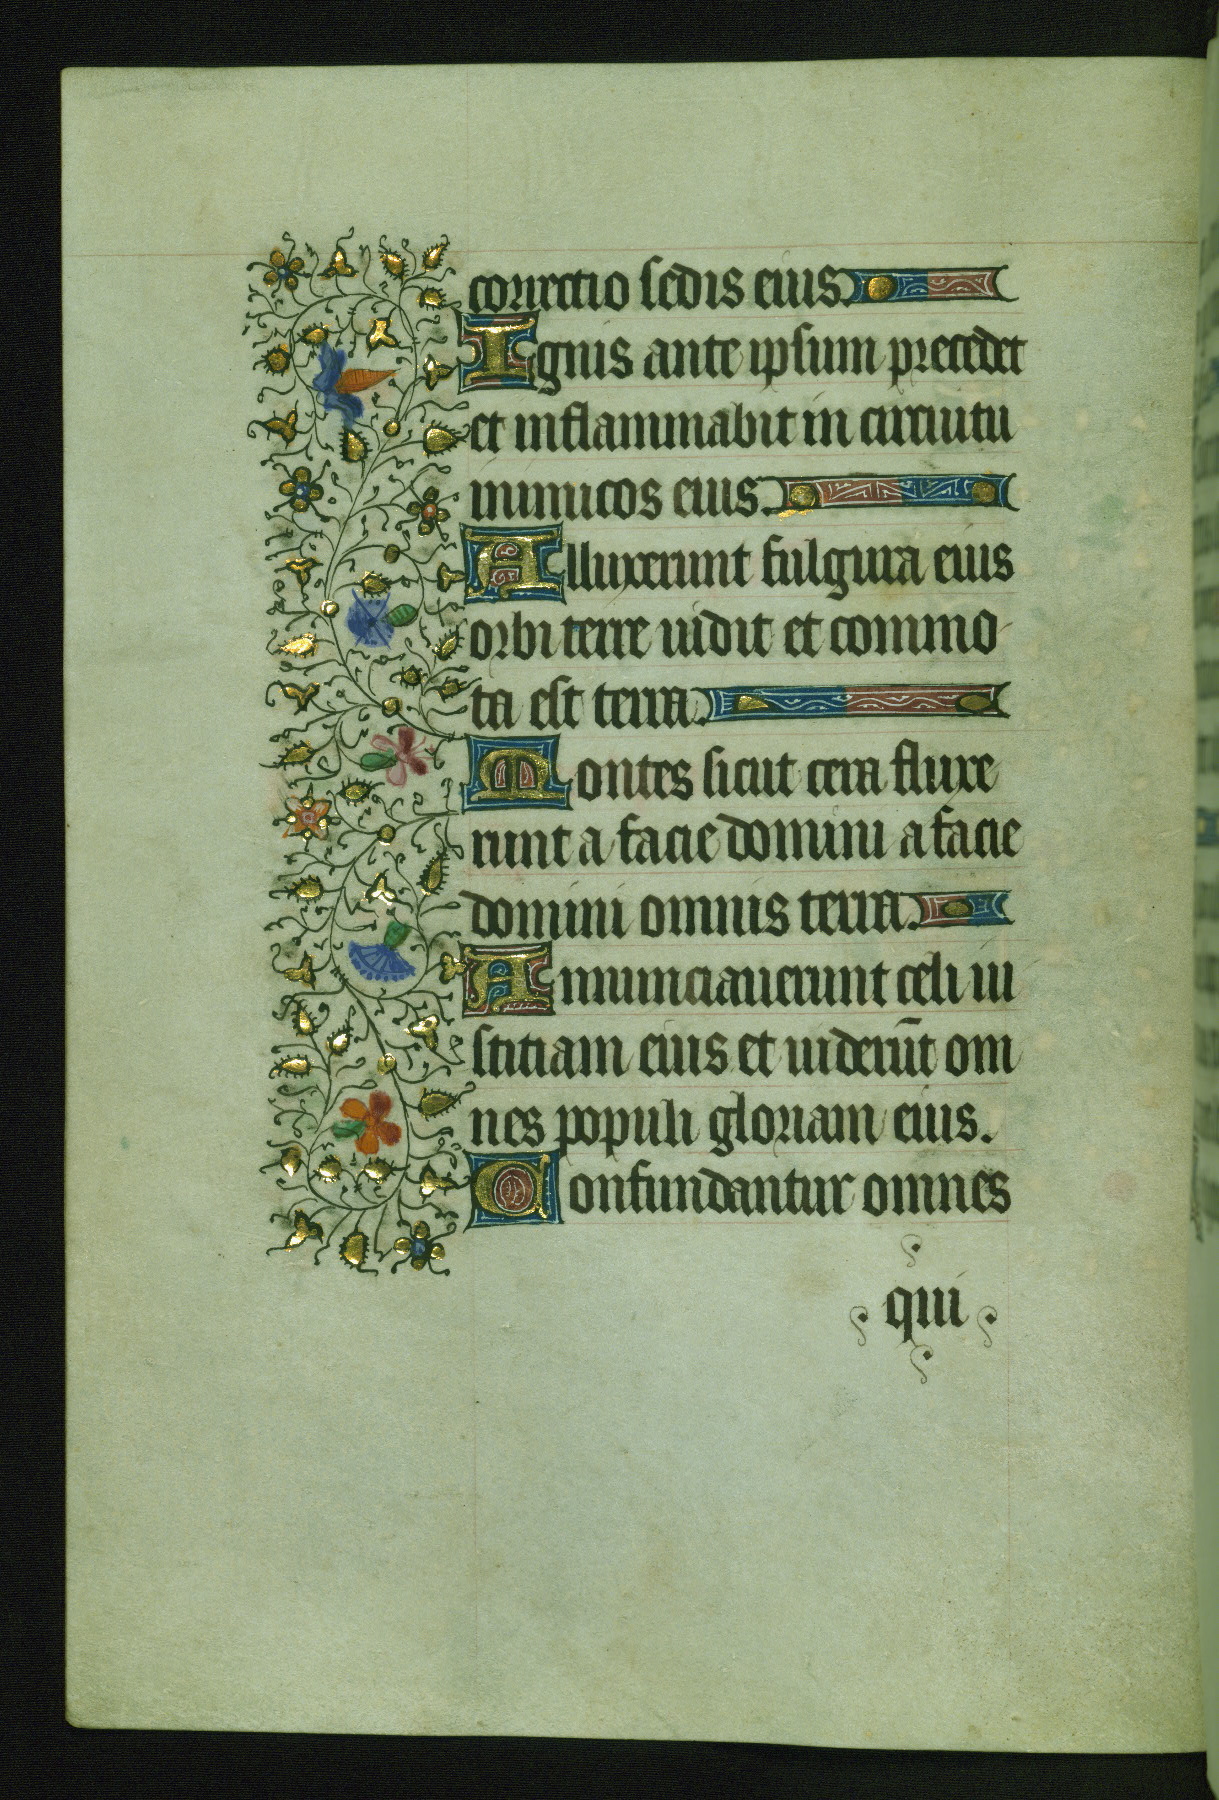 correctio sedis eius.
Ignis ante ipsum precedet
et inflammabit in circuitu
inimicos eius.
Alluxerunt fulgura eius
orbi terre uidit et commo-
ta est terra.
Montes sicut cera fluxe
runt a facie domini a facie
domini omnis terra.
Annunciauerunt celi iu
stitiam eius et uiderūt om
nes populi gloriam eius.
Confundantur omnes
qui